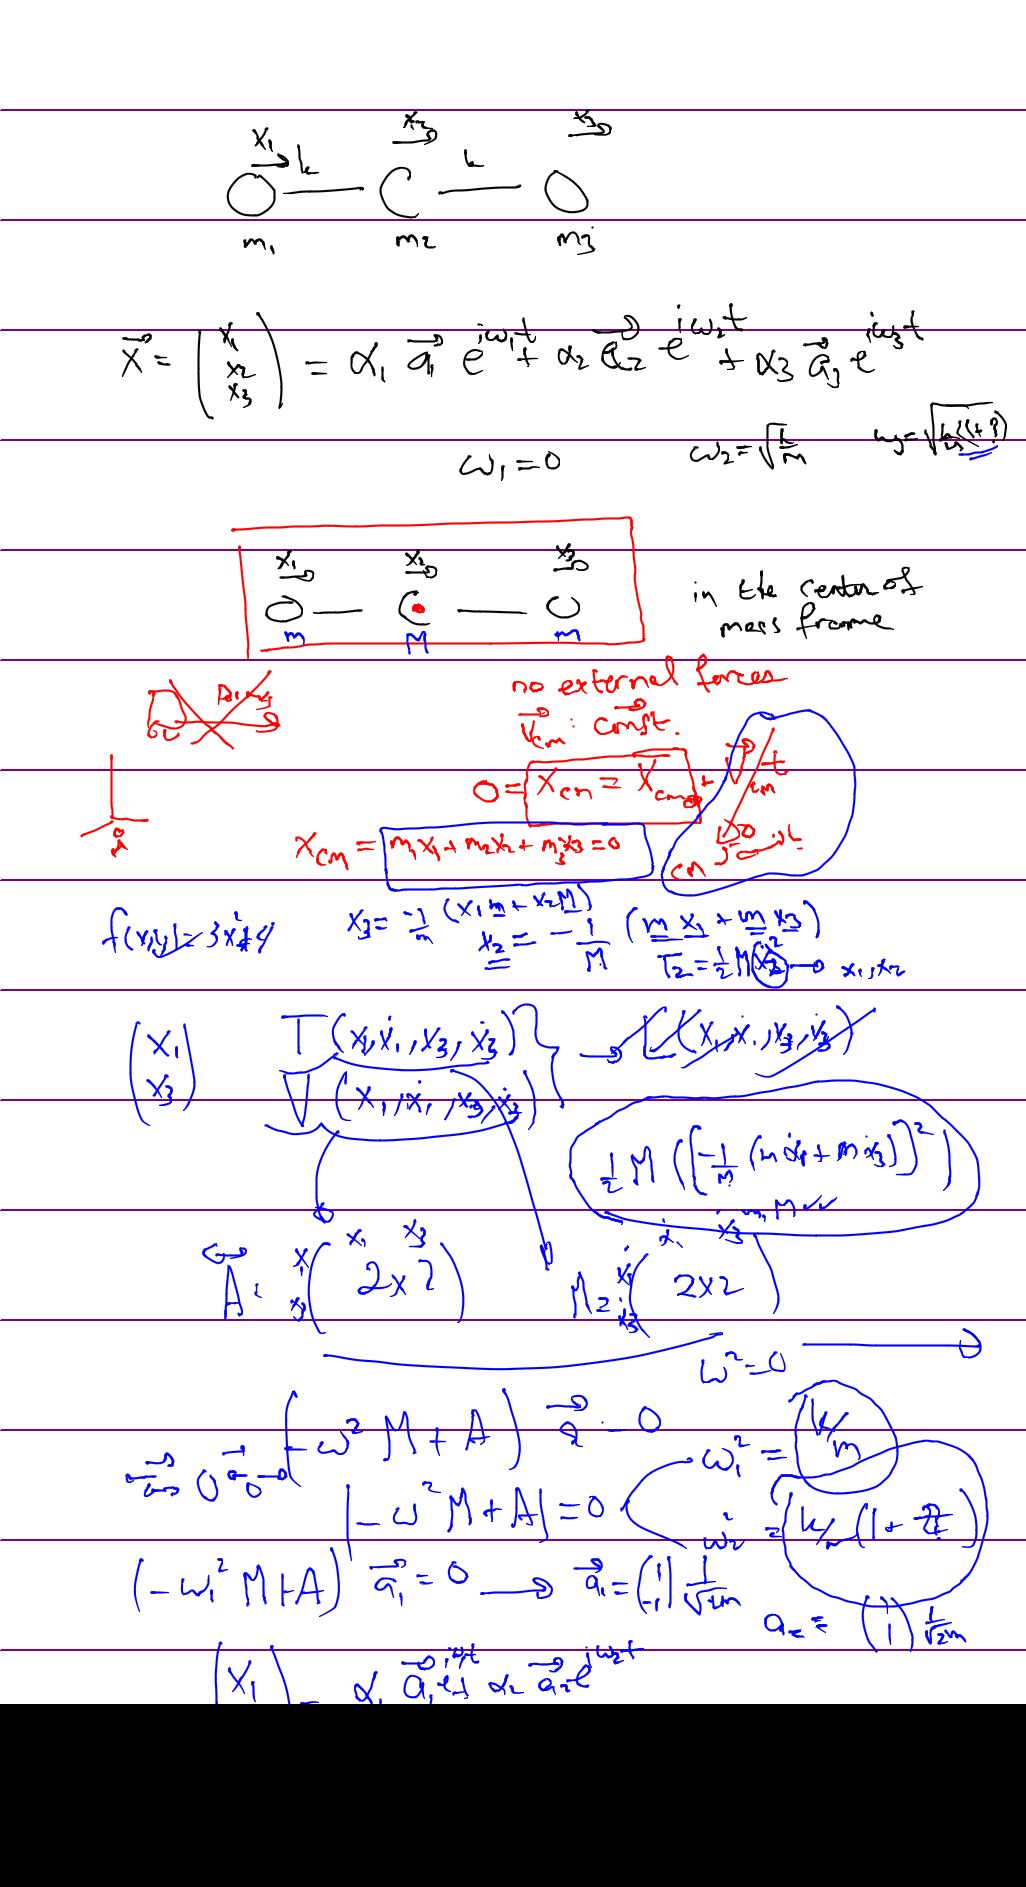 x₁ k x₂ k x₃
m₁ m₂ m₃
x⃗ = (x₁ x₂ x₃) = α₁ a⃗₁ e^{iω₁t} + α₂ a⃗₂ e^{iω₂t} + α₃ a⃗₃ e^{iω₃t}
ω₁ = 0 ω₂ = √(k/m)
x₁ x₂ x₃
m M m
in the center of
mass frame
no external forces
v⃗cm : const.
0 = xcm = xcm₀ + v⃗cm t
xcm = m₁x₁ + m₂x₂ + m₃x₃ = 0
cm
x₃ = -1/m (x₁m + x₂M)
x₂ = -1/M (m x₁ + m x₃)
T₂ = ½ M ẋ₂² → x₁, x₂
(x₁ x₃) T(x₁, ẋ₁, x₃, ẋ₃) → L(x₁, ẋ₁, x₃, ẋ₃)
V(x₁, ẋ₁, x₃, ẋ₃)
½ M ([-1/M (m ẋ₁ + m ẋ₃)]²)
m, M
x₁ x₃ ẋ₁ ẋ₃
A: x₁ x₃ (2x2) M = ẋ₁ ẋ₃ (2x2)
ω² = 0
(-ω² M + A) a⃗ = 0
ω₁² = k/m
|-ω² M + A| = 0
(-ω₁² M + A) a⃗₁ = 0 → a⃗₁ = (1 -1) 1/√2m
a₂ = (1 1) 1/√2m
(x₁ = α₁ a⃗₁ e^{iω₁t} + α₂ a⃗₂ e^{iω₂t}